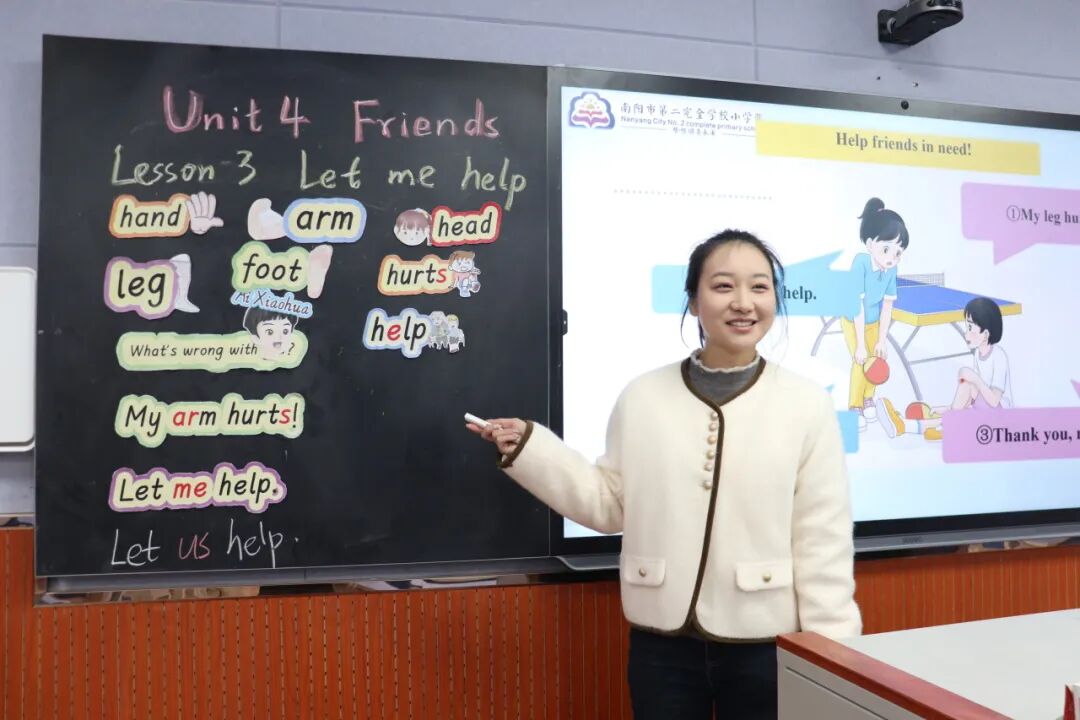 Unit 4 Friends
Lesson 3 Let me help
hand arm head
leg foot hurts
Ai Xiaohua
help
What's wrong with ?
My arm hurts!
Let me help.
Let us help.
南阳市第二完全学校小学
Nanyang City No. 2 complete primary
Help friends in need!
①My leg hu
help.
③Thank you,